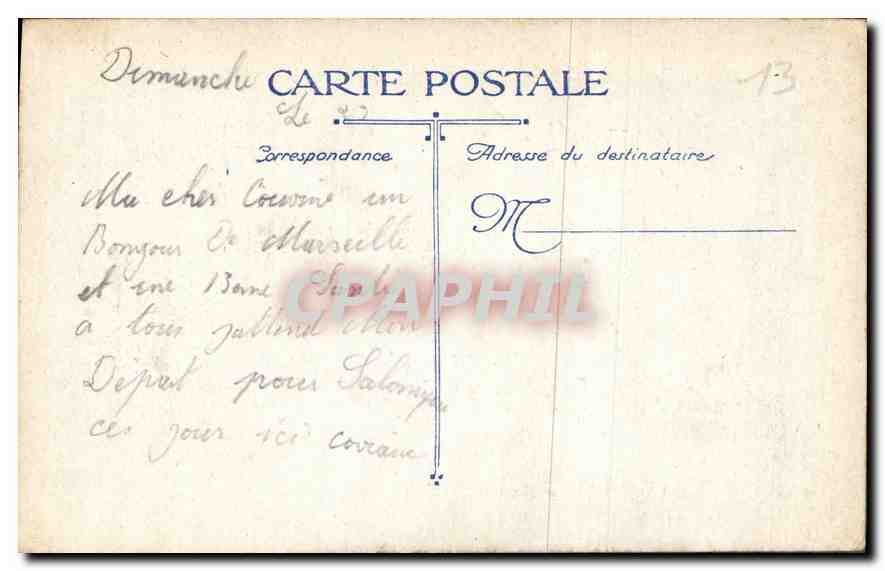 Dimanche
CARTE POSTALE
13
Le 22
Correspondance
Adresse du destinataire
Ma cher Couvine un
M
Bonjour De Marseille
et une Bone Sante
CPAPHIL
a tous jattend Mon
Départ pour Salonique
ces jour ici